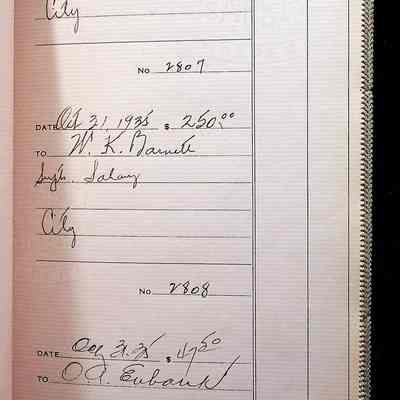 City
No 2807
DATE Oct 31, 1935 $ 250.00
TO W. K. Barnett
Supt. Salary
City
No 2808
DATE Oct 31, 35 $ 47.50
TO O. A. Eubank